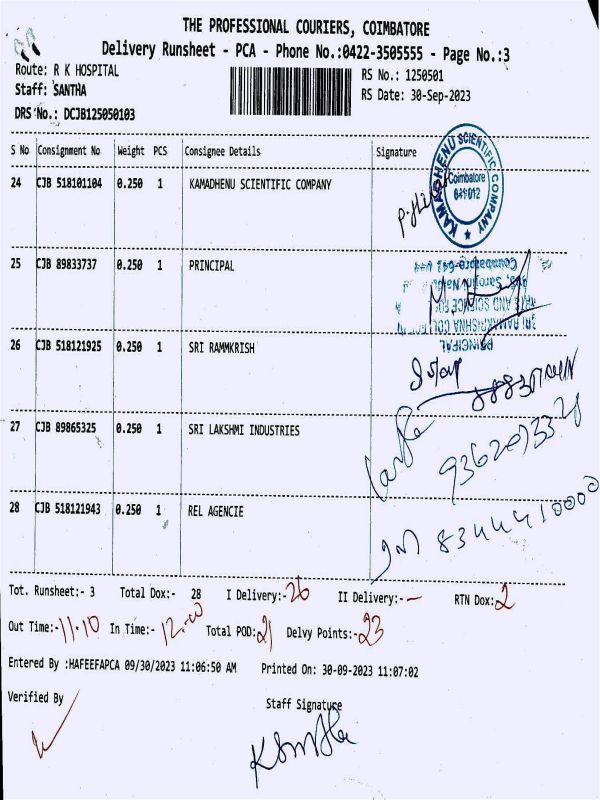 THE PROFESSIONAL COURIERS, COIMBATORE
Delivery Runsheet - PCA - Phone No.:0422-3505555 - Page No.:3
Route: R K HOSPITAL
RS No.: 1250501
Staff: SANTHA
RS Date: 30-Sep-2023
DRS No.: DCJB125050103
S No Consignment No Weight PCS Consignee Details Signature
24 CJB 518101104 0.250 1 KAMADHENU SCIENTIFIC COMPANY
KAMADHENU SCIENTIFIC COMPANY
Coimbatore
641 012
25 CJB 89833737 0.250 1 PRINCIPAL
PRINCIPAL
SRI RAMAKRISHNA COLLEGE
ARTS AND SCIENCE FOR
Coimbatore-641 044
26 CJB 518121925 0.250 1 SRI RAMMKRISH
27 CJB 89865325 0.250 1 SRI LAKSHMI INDUSTRIES
28 CJB 518121943 0.250 1 REL AGENCIE
8344410000
Tot. Runsheet:- 3 Total Dox:- 28 I Delivery:- 26 II Delivery:- - RTN Dox: 2
Out Time:- 11.10 In Time:- 12.00 Total POD: 21 Delvy Points:- 23
Entered By :HAFEEFAPCA 09/30/2023 11:06:50 AM Printed On: 30-09-2023 11:07:02
Verified By
Staff Signature